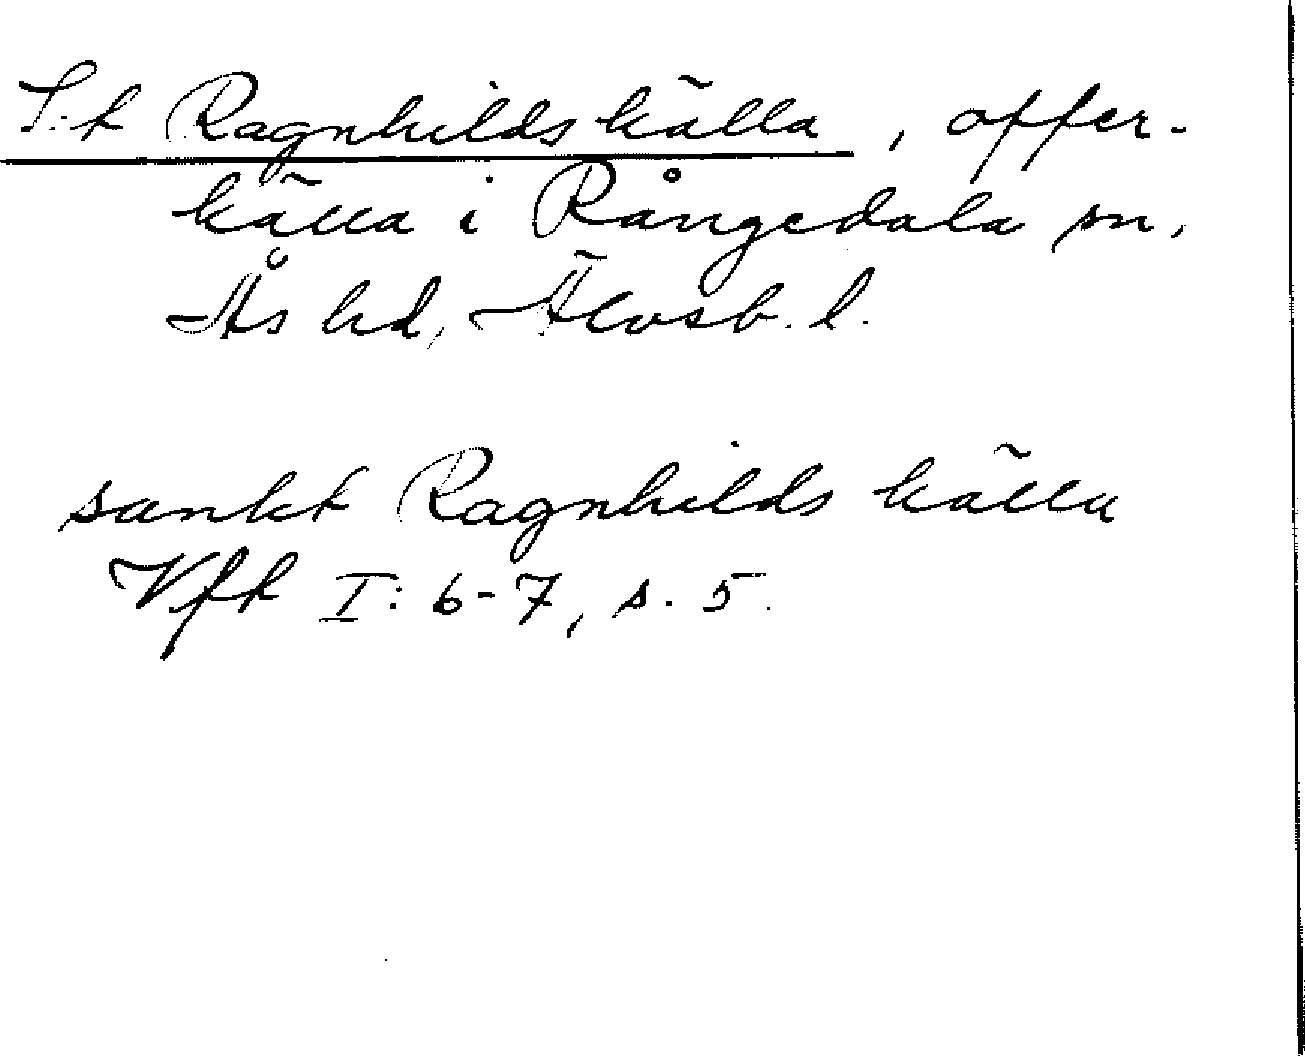 S:t Ragnhilds källa, offer-
källa i Rångedala sn,
Ås hd, Älvsb. l.
sankt Ragnhilds källa
Vfk I: 6-7, s. 5.